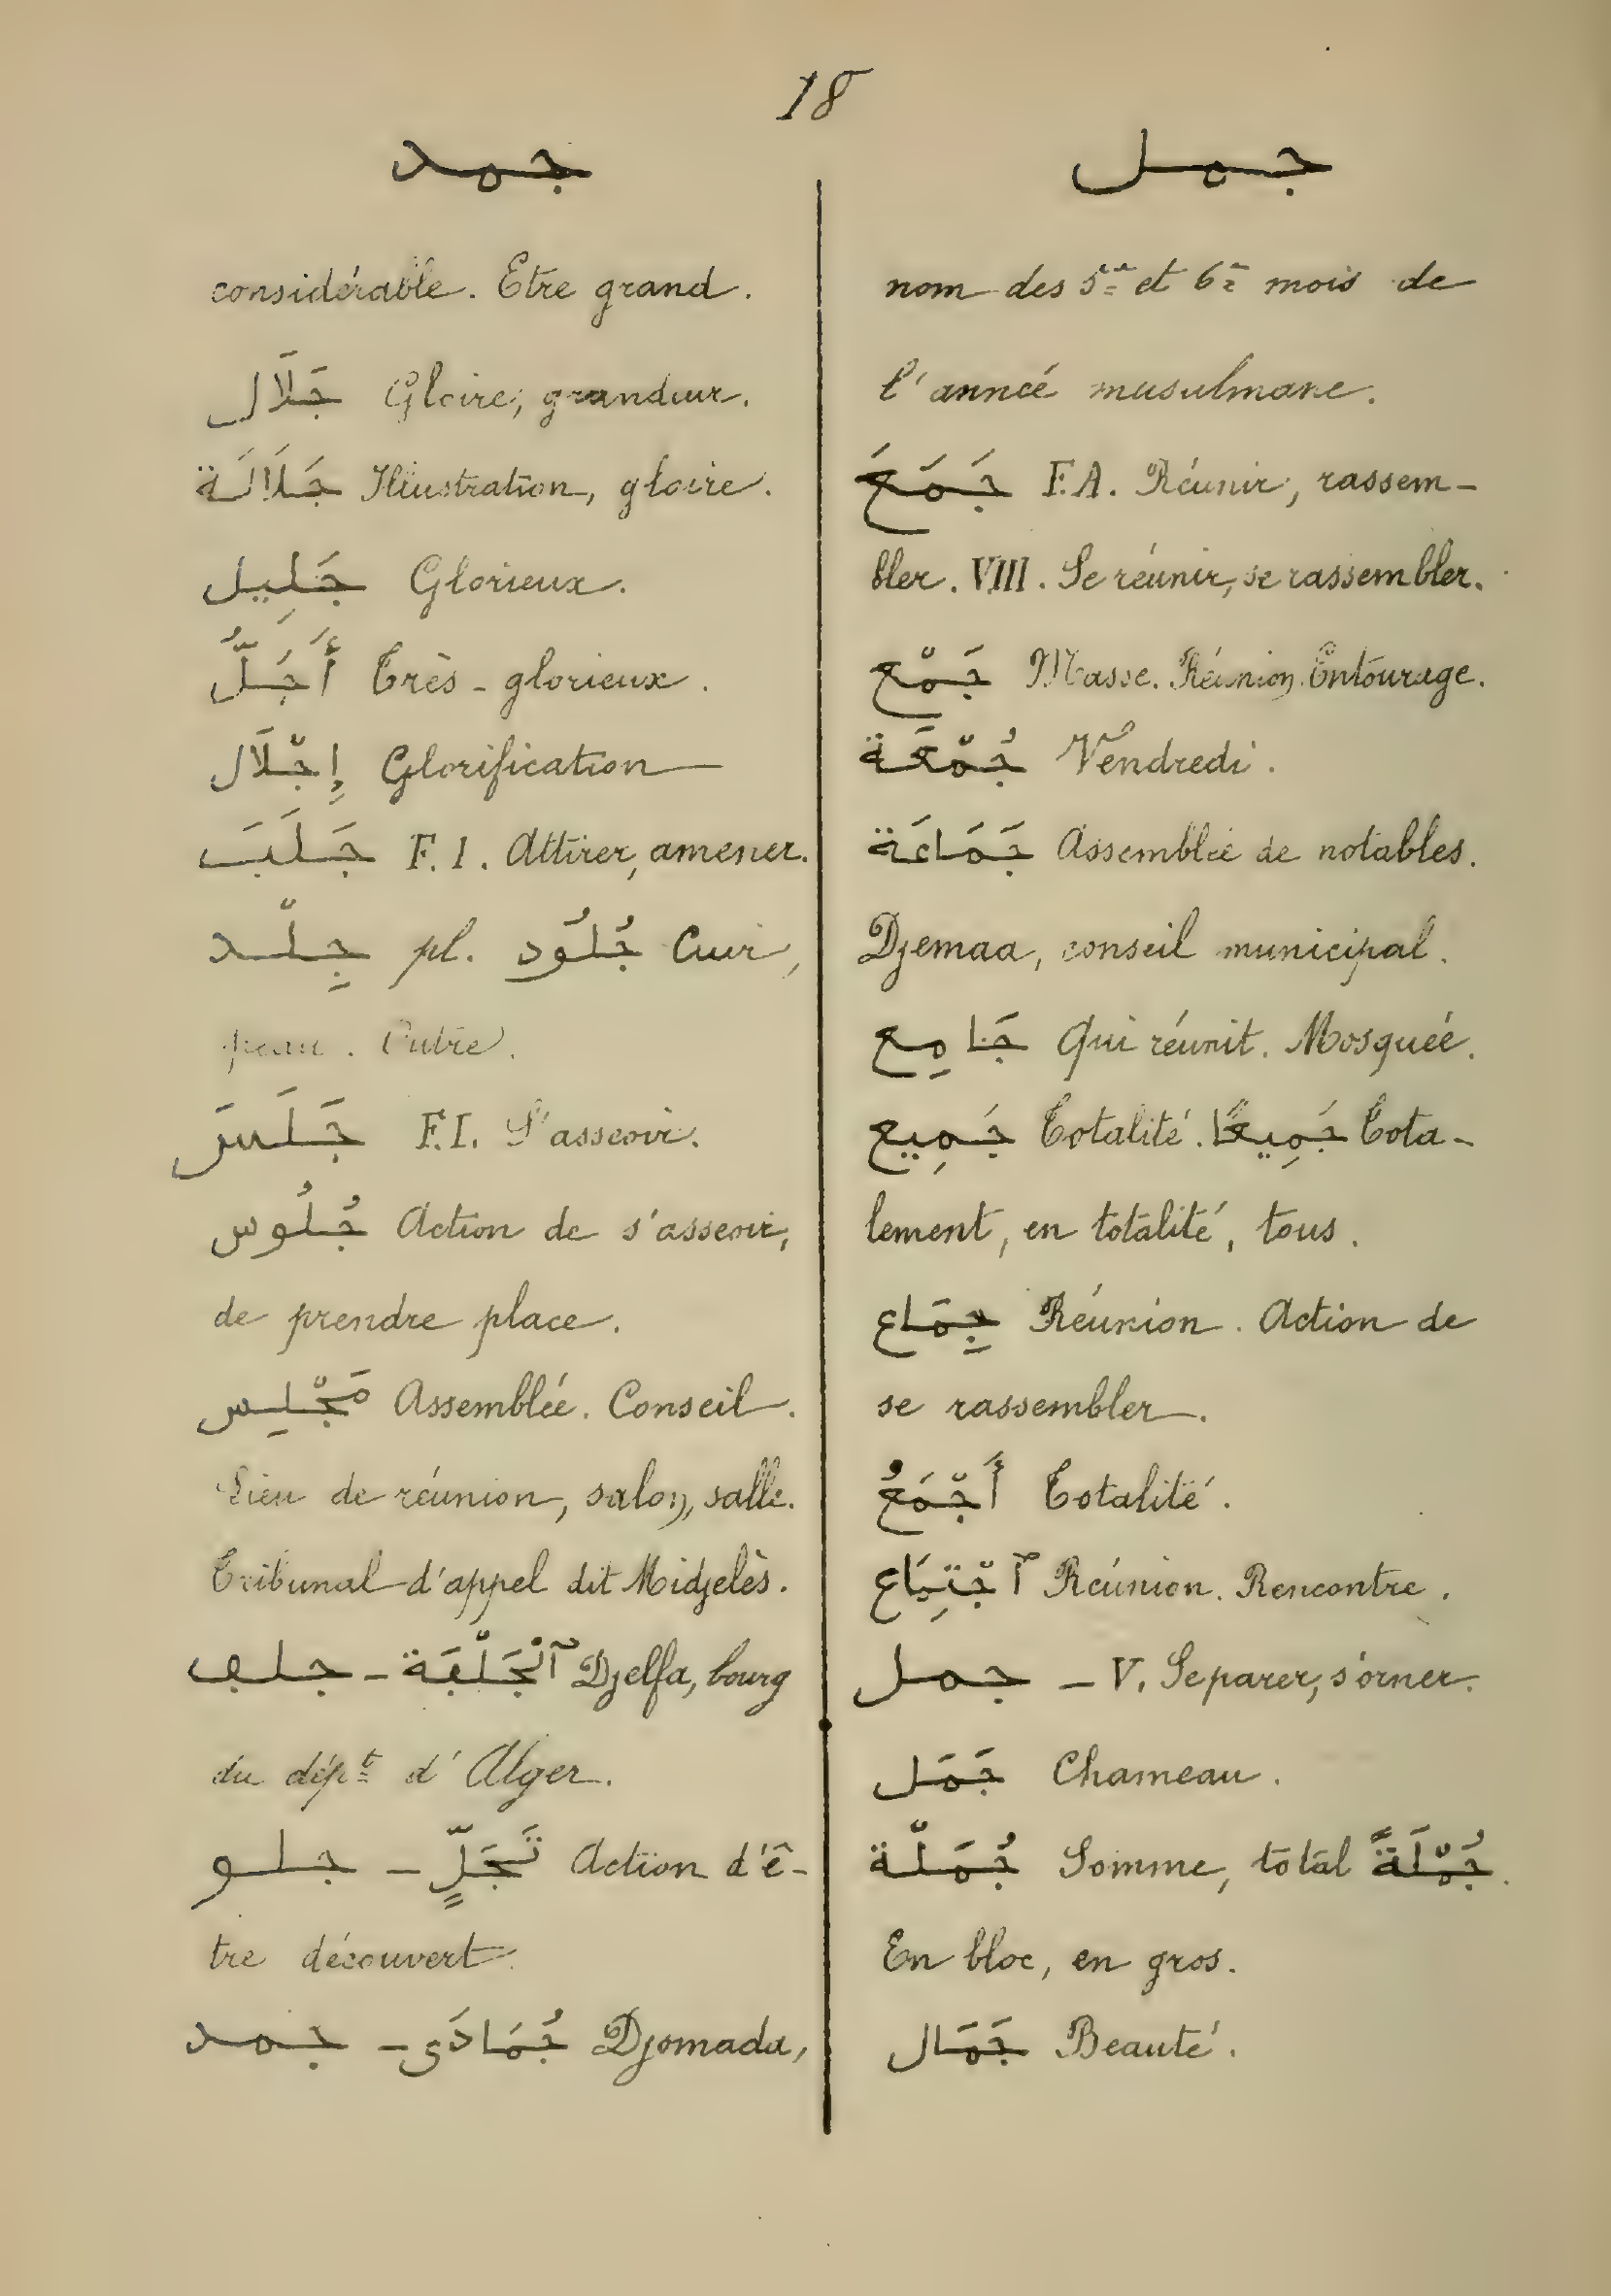 18
جمد
considérable. Etre grand.
جَلَال Gloire, grandeur.
جَلَالَة Illustration, gloire.
جَلِيل Glorieux.
أَجَلُّ Très-glorieux.
إِجْلَال Glorification
جَلَبَ F.I. Attirer, amener.
جِلْد pl. جُلُود Cuir,
peau. Outre.
جَلَسَ F.I. S'asseoir.
جُلُوس Action de s'asseoir,
de prendre place.
مَجْلِس Assemblée. Conseil.
Lieu de réunion, salon, salle.
Tribunal d'appel dit Midjelès.
جلڢ - ٱلْجَلْڢَة Djelfa, bourg
du dépt d'Alger.
جلو - تَجَلٍّ Action d'ê-
tre découvert.
جمد - جُمَادَى Djomada,
جمل
nom des 5me et 6e mois de
l'anneé musulmane.
جَمَعَ F.A. Réunir, rassem-
bler. VIII. Se réunir, se rassembler.
جَمْع Masse. Réunion. Entourage.
جُمْعَة Vendredi.
جَمَاعَة Assemblée de notables.
Djemaa, conseil municipal.
جَامِع Qui réunit. Mosquée.
جَمِيع Totalité. جَمِيعًا Tota-
lement, en totalité, tous.
جِمَاع Réunion. Action de
se rassembler.
أَجْمَعُ Totalité.
ٱجْتِمَاع Réunion. Rencontre.
جمل - V. Se parer, s'orner.
جَمَل Chameau.
جُمَلْة Somme, total جُمْلَةً.
En bloc, en gros.
جَمَال Beauté.